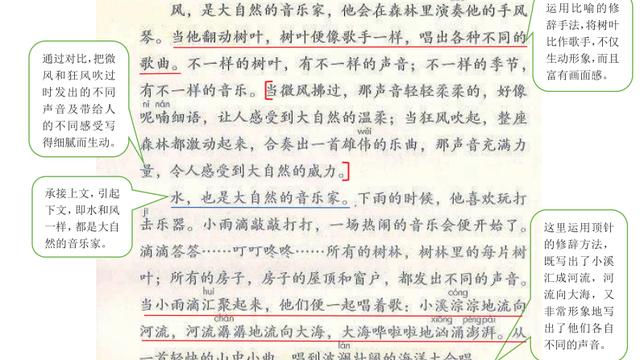 风，是大自然的音乐家，他会在森林里演奏他的手风
琴。当他翻动树叶，树叶便像歌手一样，唱出各种不同的
歌曲。不一样的树叶，有不一样的声音；不一样的季节，
有不一样的音乐。当微风拂过，那声音轻轻柔柔的，好像
nǐ nán
呢喃细语，让人感受到大自然的温柔；当狂风吹起，整座
wěi
森林都激动起来，合奏出一首雄伟的乐曲，那声音充满力
量，令人感受到大自然的威力。
水，也是大自然的音乐家。下雨的时候，他喜欢玩打
jī
击乐器。小雨滴敲敲打打，一场热闹的音乐会便开始了。
滴滴答答……叮叮咚咚……所有的树林，树林里的每片树
叶；所有的房子，房子的屋顶和窗户，都发出不同的声音。
huì
cóng
当小雨滴汇聚起来，他们便一起唱着歌：小溪淙淙地流向
chán
xiōng péng pài
河流，河流潺潺地流向大海，大海哗啦啦地汹涌澎湃。从
一首轻快的山中小曲，唱到波澜壮阔的海洋大合唱。
通过对比，把微
风和狂风吹过
时发出的不同
声音及带给人
的不同感受写
得细腻而生动。
承接上文，引起
下文，即水和风
一样，都是大自
然的音乐家。
运用比喻的修
辞手法，将树叶
比作歌手，不仅
生动形象，而且
富有画面感。
这里运用顶针
的修辞方法，
既写出了小溪
汇成河流，河
流向大海，又
非常形象地写
出了他们各自
不同的声音。